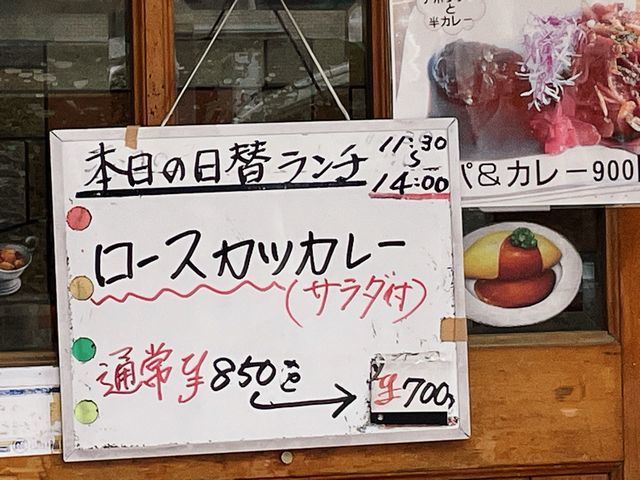 と
半カレー
パ&カレー900円
本日の日替ランチ 11:30
〜
14:00
ロースカツカレー
(サラダ付)
通常¥850を
→ ¥700